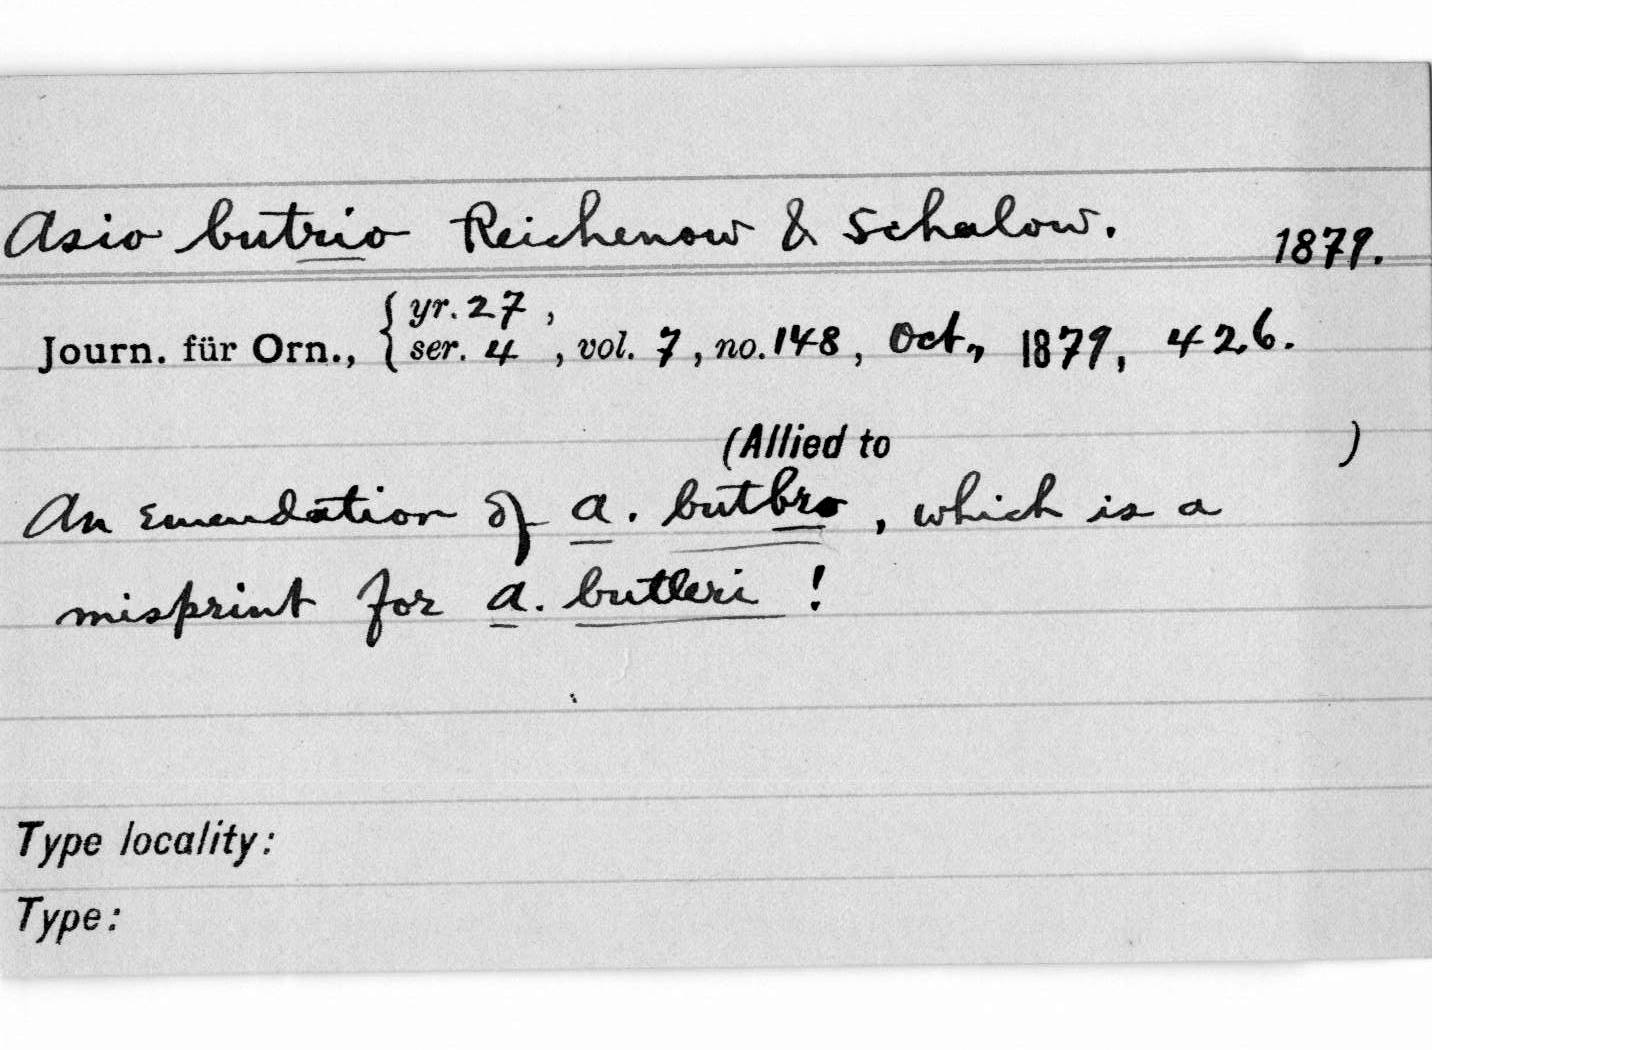 Asio butrio Reichenow & Schalow. 1879.
Journ. für Orn., { yr. 27 ,
ser. 4 , vol. 7 , no. 148 , Oct., 1879, 426.
(Allied to )
An emendation of A. butbro , which is a
misprint for A. butleri !
Type locality:
Type: